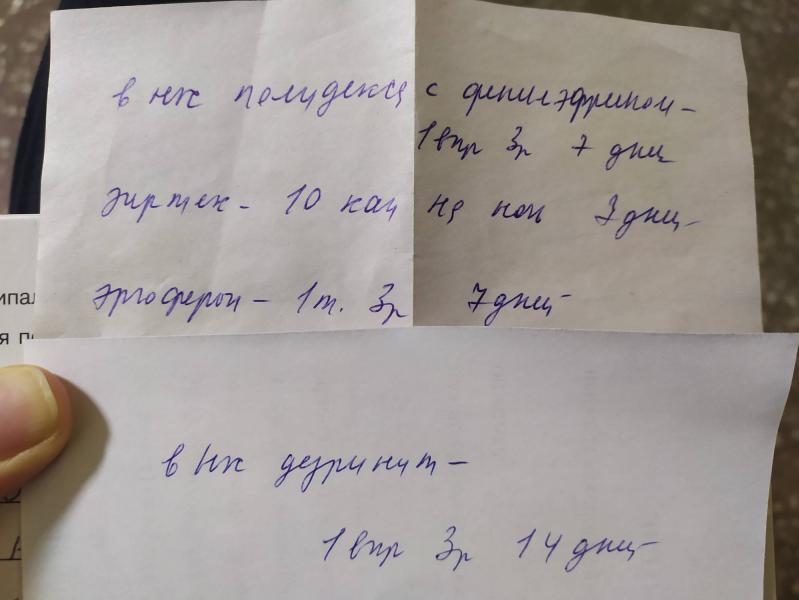 в нж полидекса с фенилэфрином -
1 впр 3р 7 дней
зиртек - 10 кап на ноч 7 дней
эргоферон - 1 т. 3р 7 дней
ипал
я п
в нж дезринит -
1 впр 3р 14 дней